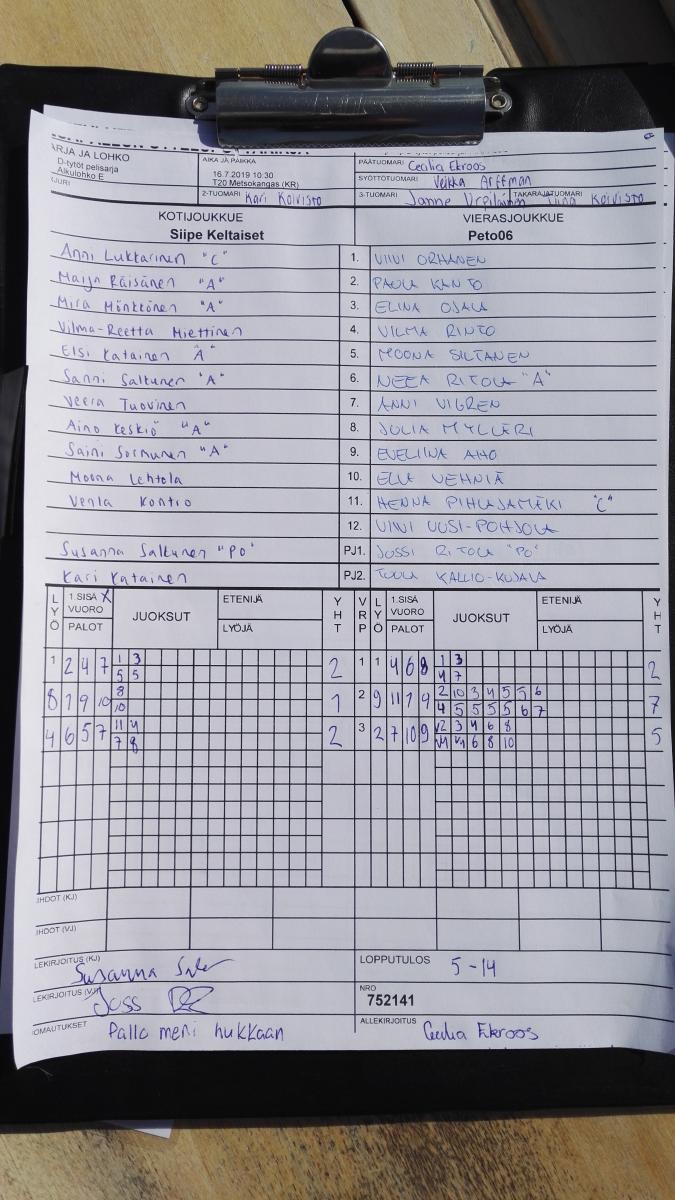 ARJA JA LOHKO
D-tytöt pelisarja
Alkulohko E
AIKA JA PAIKKA
16.7.2019 10:30
T20 Metsokangas (KR)
PÄÄTUOMARI Cecilia Ekroos
SYÖTTÖTUOMARI Veikka Arffman
2-TUOMARI Kari Koivisto
3-TUOMARI Janne Urpilainen TAKARAJATUOMARI Tiina Koivisto
KOTIJOUKKUE VIERASJOUKKUE
Siipe Keltaiset Peto06
Anni Lukkarinen "C" 1. VIIVI ORHANEN
Maija Räisänen "A" 2. PAULA KANTO
Mira Mönkkönen "A" 3. ELINA OJALA
Vilma-Reetta Miettinen 4. VILMA RINTO
Elsi Katainen "A" 5. MOONA SILTANEN
Sanni Salkunen "A" 6. NEEA RITOLA "A"
Veera Tuovinen 7. ANNI VIGREN
Aino Keskiö "A" 8. JULIA MYLLERI
Saini Sormunen "A" 9. EVELIINA AHO
Moona Lehtola 10. ELLA VEHNIÄ
Venla Kontio 11. HENNA PIHLAJAMÄKI "C"
12. VIIVI UUSI-POHJOLA
Susanna Salkunen "PO" PJ1. JUSSI RITOLA "PO"
Kari Katainen PJ2. TUULA KALLIO-KUJALA
LYÖ 1.SISÄ X VUORO PALOT JUOKSUT ETENIJÄ LYÖJÄ YHT VRP LYÖ 1.SISÄ VUORO PALOT JUOKSUT ETENIJÄ LYÖJÄ YHT
1 2 4 7 1 3 2 1 1 4 6 8 1 3 2
5 5 4 7
8 1 9 10 8 1 2 9 11 1 9 2 10 3 4 5 5 6 7
10 4 5 5 5 5 6 7
4 6 5 7 11 4 2 3 2 7 10 9 V2 3 4 6 8 5
7 8 V1 V1 6 8 10
IHDOT (KJ)
IHDOT (VJ)
LEKIRJOITUS (KJ) Susanna LOPPUTULOS 5-14
LEKIRJOITUS (VJ) Jussi NRO
752141
OMAUTUKSET Pallo meni hukkaan ALLEKIRJOITUS Cecilia Ekroos